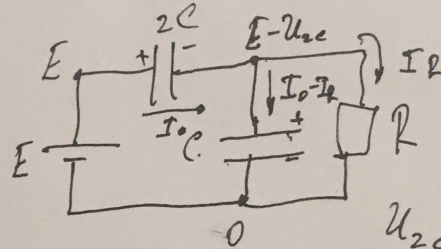 2C
E + - E-U₂c
I₀ I₀-I_R I_R
C + R
E -
0 U₂c